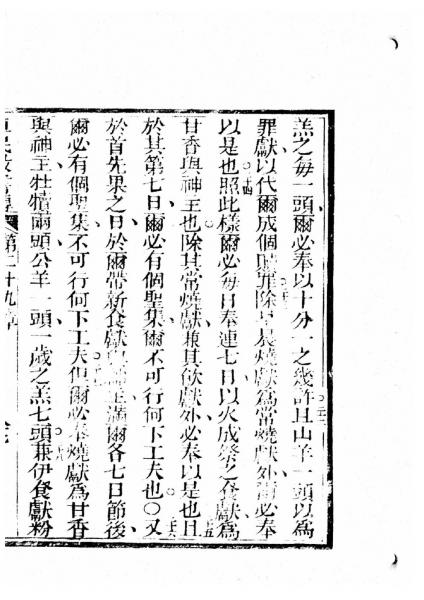 羔之每一頭爾必奉以十分一之幾許且山羊一頭以爲
罪獻以代爾成個贖罪除早晨燒獻爲常燒獻外爾必奉
以是也照此樣爾必每日奉連七日以火成祭之食獻爲
甘香與神主也除其常燒獻兼其飲獻外必奉以是也且
於其第七日爾必有個聖集爾不可行何下工夫也〇又
於首先果之日於爾帶新食獻與神主滿爾各七日節後
爾必有個聖集不可行何下工夫但爾必奉燒獻爲甘香
與神主牡犢兩頭公羊一頭一歲之羔七頭兼伊食獻粉